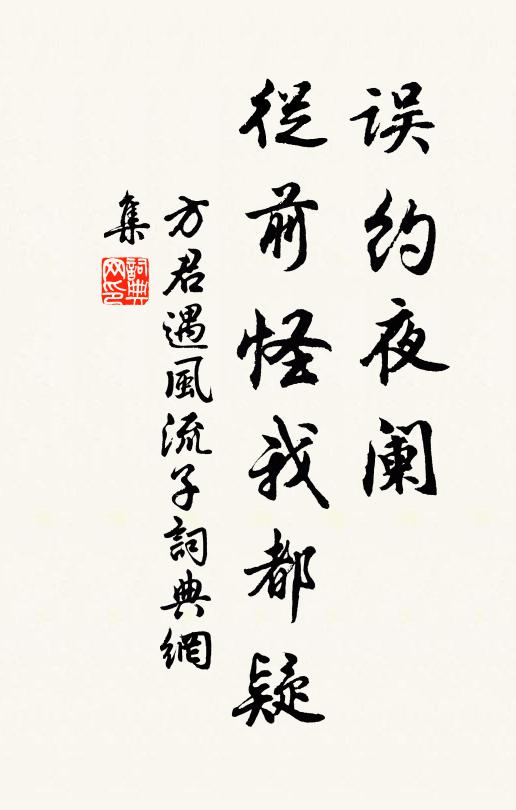 误约夜阑
從前怪我都疑
方君遇風流子詞典網
集
詞典网印